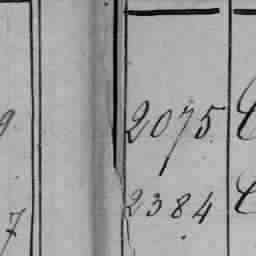 9 2075
7 2384